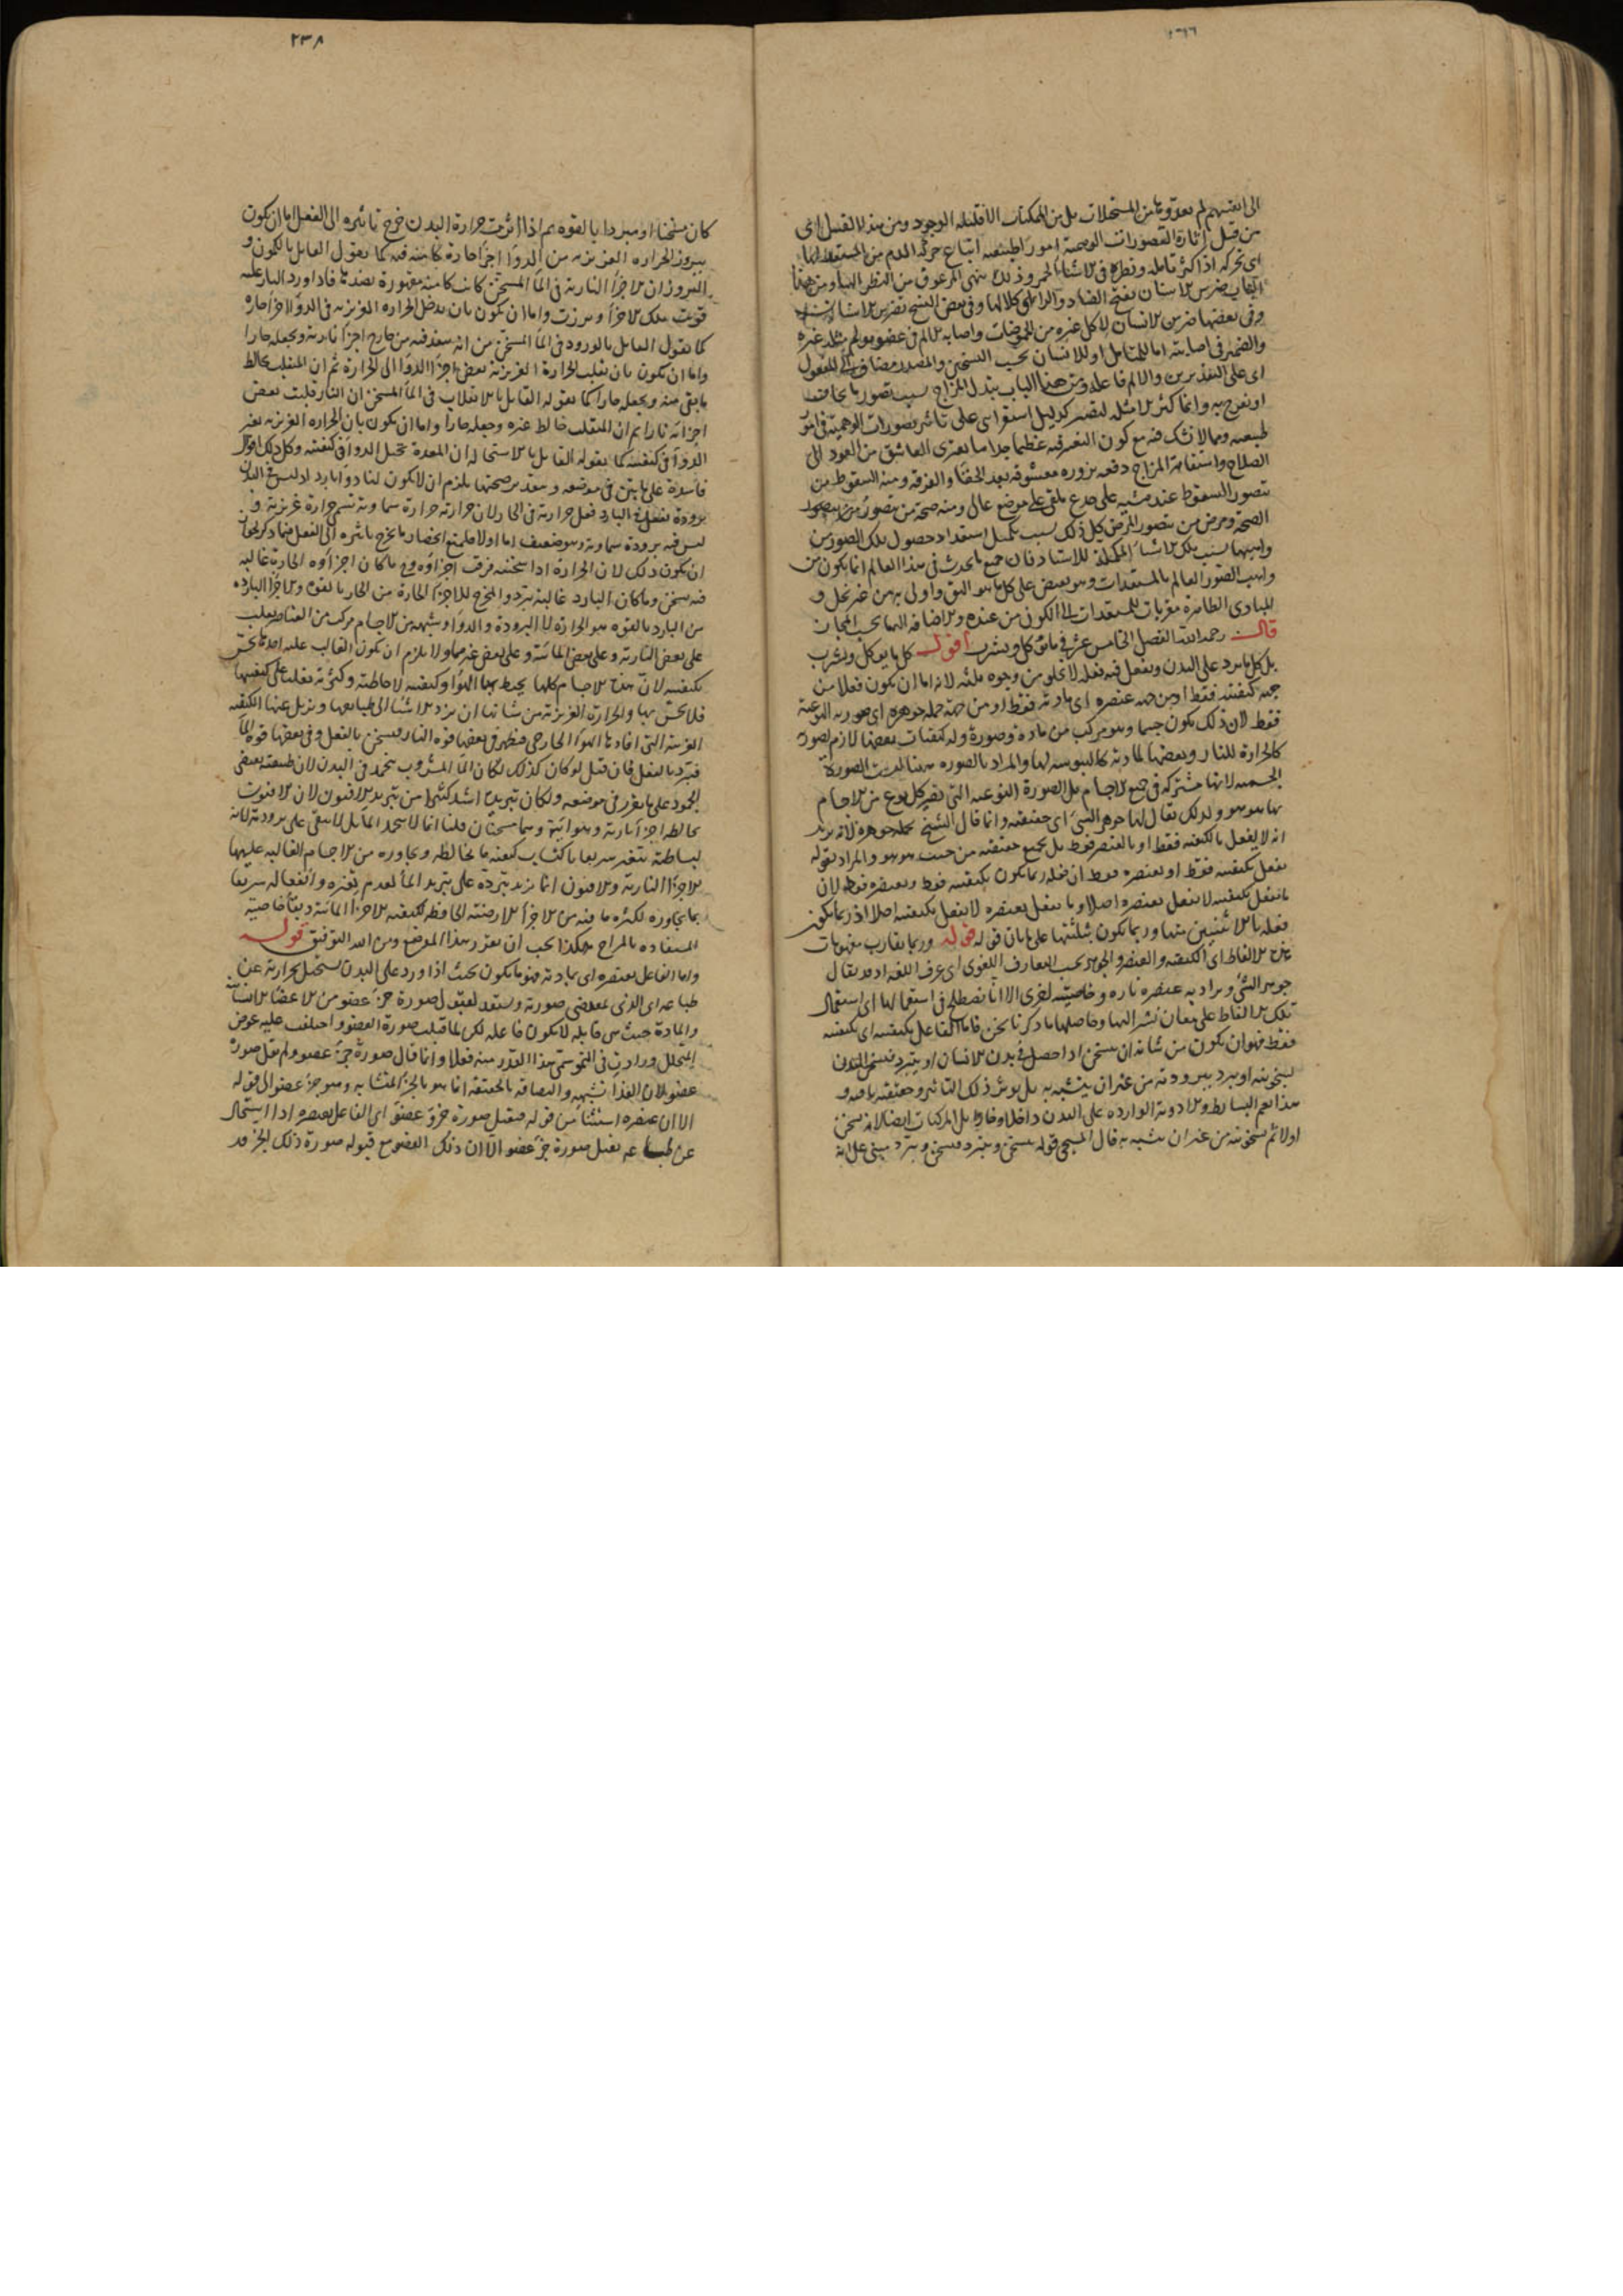 الى انفسهم لم يعدوها من المستحيلات بل من الممكنات الا قليلة الوجود ومن هذا القبيل اى
من قبيل اثارة التصورات الوهمية امورا طبيعية اتباع حركة الدم من المستعد لها
اى تحركه اذا كثر تامله ونظره فى الاشياء الحمر وذلك ينهى المرعوف من النظر اليها ومن هذا
الباب ضرس الاسنان
وفى بعضها ضرس الانسان لاكل غيره من الحموضات واصابة الالم فى عضو يولم مثله غيره
والضمير فى اصابته اما للمتامل او للانسان بحسب النسختين والمصدر مضاف الى المفعول
اى على التقديرين والالم فاعله ومن هذا الباب تبدل المزاج بسبب تصور ما يخاف
او يفرح به وانما كثر الامثلة ليصير كدليل استقرائى على تاثير تصورات الوهمية فى امور
طبيعية ومما لا شك فيه مع كون التغير فيه عظيما جدا ما يعترى العاشق من العود الى
الصلاح واستقامة المزاج دفعة بزورة معشوقه بعد الجفاء والفرقة ومنه السقوط من
تصور السقوط عند مشيه على جذع ملقى على موضع عال ومنه صحة من تصور
الصحة ومرض من يتصور المرض كل ذلك بسبب تكميل استعداد حصول تلك الصور من
واهبها بسبب تلك الاشياء المكملة للاستعداد فان جميع ما يحدث فى هذا العالم انما يكون من
واهب الصور العالم بالمستعدات وهو يفيض على كل ما هو اليق واولى به من غير بخل و
المبادى الظاهرة مقربات للمستعدات الى الكون من عنده والاضافة اليها بحسب المجاز
قال رحمه الله الفصل الخامس عشر فى ما يؤكل ويشرب اقول كل ما يوكل ويشرب
بل كل ما يرد على البدن ويفعل فيه فعله لا يخلو من وجوه ثلثة لانه اما ان يكون فعلا من
جهة كيفيته فقط او من جهة عنصره اى مادته فقط او من جهة جملة جوهره اى صورته النوعية
فقط لان ذلك يكون جسما وهو مركب من مادة وصورة وله كيفيات بعضها لازم لصورته
كالحرارة للنار وبعضها لمادته كاليبوسة لها والمراد بالصورة ههنا ليست الصورة
الجسمية لانها مشتركة فى جميع الاجسام بل الصورة النوعية التى يصير كل نوع من الاجسام
بها هو هو ولذلك يقال لها جوهر الشىء اى حقيقته وانما قال الشيخ بجملة جوهره لانه يريد
انه لا يفعل بالكيفية فقط او بالعنصر فقط بل بجميع حقيقته من حيث هو هو والمراد بقوله
يفعل بكيفيته فقط او بعنصره فقط ان فعله ربما يكون بكيفيته فقط وبعنصره فقط لان
ما يفعل بكيفيته لا يفعل بعنصره اصلا وما يفعل بعنصره لا يفعل بكيفيته اصلا اذ ربما يكون
فعله بالاثنين منها وربما يكون بثلثتها على ما بان قوله قوله وربما تقارب مفهومات
هذه الالفاظ اى الكيفية والعنصر والجوهر بحسب التعارف اللغوى اى عرف اللغة اذ قد يقال
جوهر الشىء ويراد به عنصره تارة وخاصيته اخرى الا انا نصطلح فى استعمالها اى استعمال
تلك الالفاظ على معان نشير اليها وحاصلها ما ذكرنا نحن فاما الفاعل بكيفيته اى بكيفيته
فقط فهو ان يكون من شانه ان يسخن اذا حصل فى بدن الانسان او يتبرد فيسخن البدن
بسخونته او يبرد ببرودته من غير ان يتشبه به بل يوثر ذلك التاثير وحقيقته باقية و
هذا يعم البسائط والادوية الواردة على البدن داخلا وخارجا بل المركبات ايضا لانه يسخن
اولا ثم يسخن بدنه من غير ان يشبه به قال المسيحى قوله يتسخن ويتبرد فيسخن ويبرد مبنى على انه
٢٣٨
كان مسخنا او مبردا بالقوة ثم اذا اثرت حرارة البدن خرج تاثيره الى الفعل اما ان يكون
ببروز الحرارة الغريزية من الدواء اجزاء حارة كامنة فيه كما يقول القايل بالكمون و
البروز ان الاجزاء النارية فى الماء المسخن كانت كامنة مقهورة بضدها فاذا ورد النار عليه
قويت تلك الاجزاء وبرزت واما ان تكون بان يدخل الحرارة الغريزية فى الدواء اجزاء حارة
كما يقول القايل بالورود فى الماء المسخن من انه ينفذ فيه من خارج اجزاء نارية ويجعله حارا
واما ان تكون بان يقلب الحرارة الغريزية بعض اجزاء الدواء الى الحرارة ثم ان المنقلب يخالط
ما بقى منه ويجعله حارا كما يقوله القايل بالانقلاب فى الماء المسخن ان النار قلبت بعض
اجزائه نارا ثم ان المنقلب خالط غيره وجعله حارا واما ان يكون بان الحرارة الغريزية تغير
الدواء فى كيفيته كما يقوله القايل بالاستحالة ان المعدة تحيل الدواء فى كيفيته وكل ذلك اقوال
فاسدة على ما بين فى موضعه وبتقدير صحتها يلزم ان لا يكون لنا دواء بارد اذ ليس فى البدن
برودة تفعل فى البارد فعل حرارته فى الحار لان حرارته حرارة سماوية تسمى حرارة غريزية و
ليس فيه برودة سماوية وهو ضعيف اما اولا فلمنع انحصار ما يخرج تاثيره الى الفعل فيما ذكر لجواز
ان يكون ذلك لان الحرارة اذا سخنته فرقت اجزاؤه فما كان اجزاؤه الحارة غالبة
فيه سخن وما كان البارد غالبة يبرد والمخرج للاجزاء الحارة من الحار بالقوة والاجزاء الباردة
من البارد بالقوة هو الحرارة لا البرودة والدواء وشبهه من الاجسام مركب من العناصر يغلب
على بعض النارية وعلى بعض المائية وعلى بعض غيرهما ولا يلزم ان يكون الغالب عليه احدها يحس
بكيفيته لان هذه الاجسام كلها يحيط بها الهواء وكيفيته لاحاطته وكثرته تغلب على كيفيتها
فلا يحس بها والحرارة الغريزية من شانها ان ترد الاشياء الى طبايعها وتزيل عنها الكيفية
الغريبة التى افادها الهواء الخارجى فيظهر فى بعضها قوة النار فيسخن بالفعل وفى بعضها قوة الماء
فيبرد بالفعل فان قيل لو كان كذلك لكان الماء المشروب يجمد فى البدن لان طبيعته يقتضى
الجمود على ما تقرر فى موضعه ولكان تبريده اشد كثيرا من تبريد الافيون لان الافيون
يخالطه اجزاء نارية وهوائية وهما مسخنان قلنا انما لا ينجمد الماء بل لا يبقى على برودته لانه
لبساطته يتغير سريعا باكتساب كيفية ما يخالطه ويجاوره من الاجسام الغالبة عليها
الاجزاء النارية والافيون انما يزيد تبرده على تبريد الماء لعدم تغيره وانفعاله سريعا
بما يجاوره لكثرة ما فيه من الاجزاء الارضية الحافظة لكيفية الاجزاء المائية وبقاء خاصيته
المستفادة بالمزاج هكذا يجب ان يقرر هذا الموضع ومن الله التوفيق قوله
واما الفاعل بعنصره اى بمادته فهو ما يكون بحيث اذا ورد على البدن يستحيل بحرارته عن
طباعه اى الذى بمقتضى صورته ويستعد لقبول صورة جزء عضو من الاعضاء الانسانية
والمادة حيث هى قابلة لا يكون فاعلة لكن لما قبلت صورة العضو واخلفت عليه عوض
المتحلل وزادت فى النمو سمى هذا القدر منه فعلا وانما قال صورة جزء عضو ولم يقل صورة
عضو لان الغذاء تشبهه والتصاقه بالحقيقة انما هو بالجزء المتشابه وهو جزء عضو الى قوله
الا ان عنصره استثناء من قوله فيقبل صورة جزو عضو اى الفاعل بعنصره اذا استحال
عن طباعه يقبل صورة جزء عضو الا ان ذلك العضو مع قبوله صورة ذلك الجزء قد